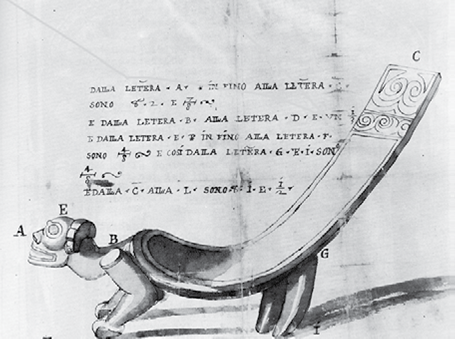 DALLA LETERA · A · IN FINO ALLA LETERA
SONO · 2 · E
E DALLA LETERA · B · ALLA LETERA · D · E · VN
E DALLA LETERA · E · IN FINO ALLA LETERA · F ·
SONO E COSI DALLA LETERA · G · E · I · SON
E DALLA · C · ALLA · L · SONO · I · E · 1/2
C
E
A
B
G
I